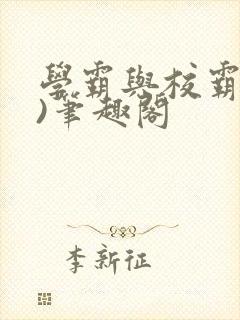 學霸與校霸
)筆趣閣
李新征